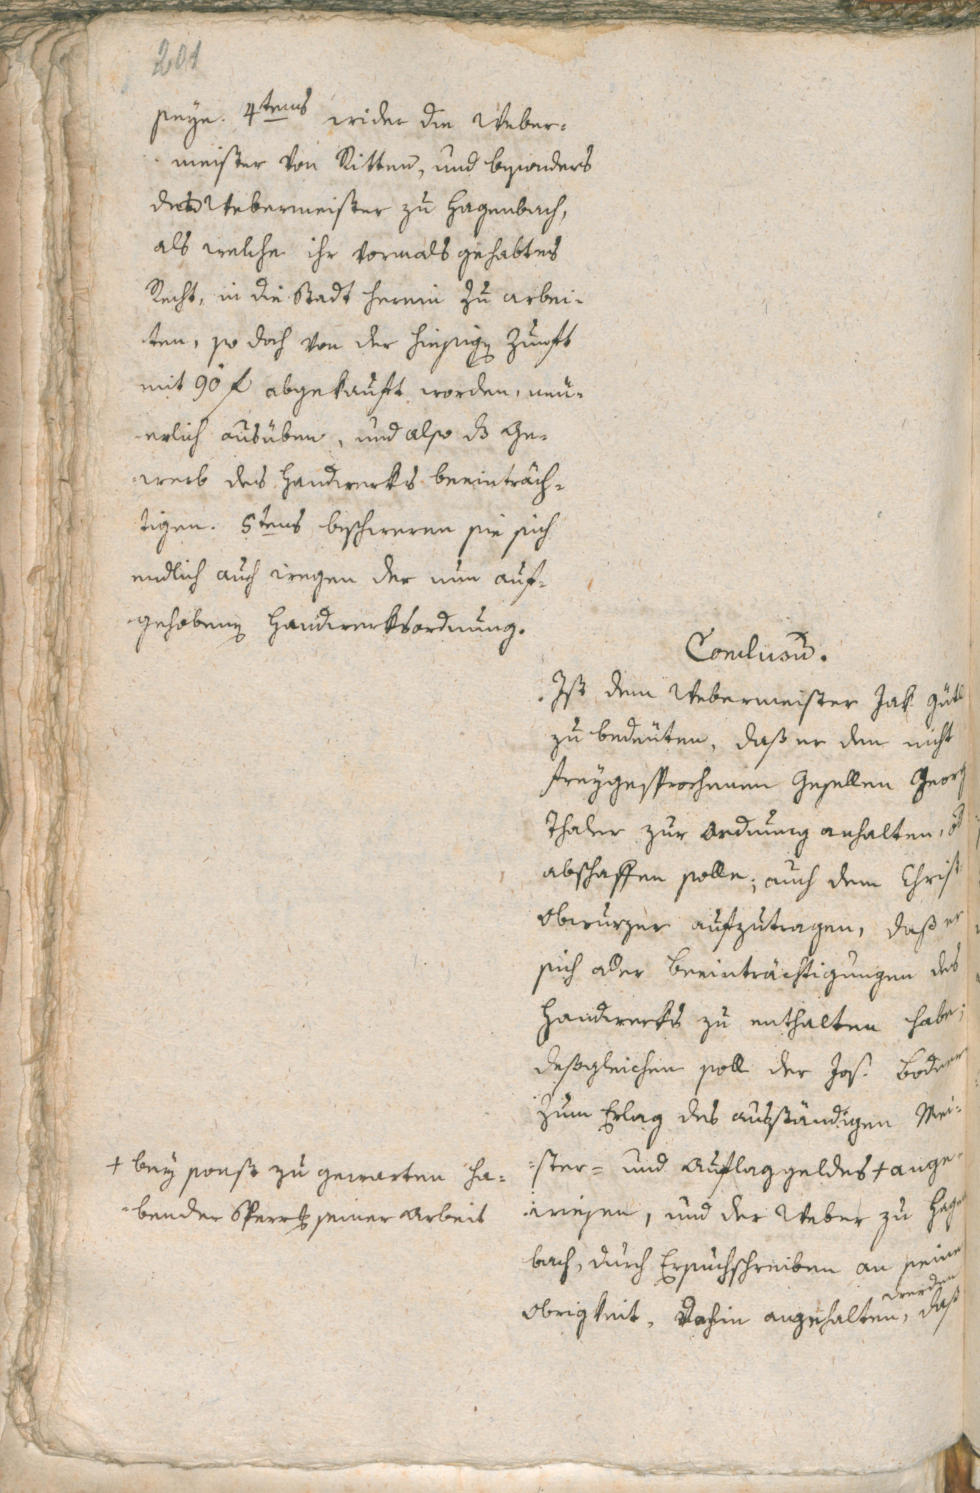 201
seye. 4tens wider die Weber-
meister von Ritten, und besonders
des Webermeister zu Hagenbach,
als welche ihr vormals gehabtes
Recht, in die Stadt herein zu arbei-
ten, so doch von der hiesigen Zunft
mit 90 f abgekauft worden, neü-
erlich ausüben, und also ds Ge-
werb des Handwerks beeinträch-
tigen. 5tens beschweren sie sich
endlich auch wegen der nun auf-
gehobenen Handwerksordnung.
Conclusū.
Ist dem Webermeister Jak Gütl
zu bedeüten, daß er den nicht
freygesprochenen Gesellen Georg
Thaler zur Ordnung anhalten, od
abschaffen solle; auch dem Christ
Obwurzer aufzutragen, daß er
sich aller Beeinträchtigungen des
Handwerks zu enthalten habe;
deßgleichen soll der Jos. Bodner
zum Erlag des ausständigen Mei-
ster- und Auflaggeldes + ange-
wiesen, und der Weber zu Hagen
bach, durch Ersuchschreiben an seine
Obrigkeit, dahin angehalten werden, daß
+ bey sonst zu gewarten ha-
bender Sperrg seiner Arbeit